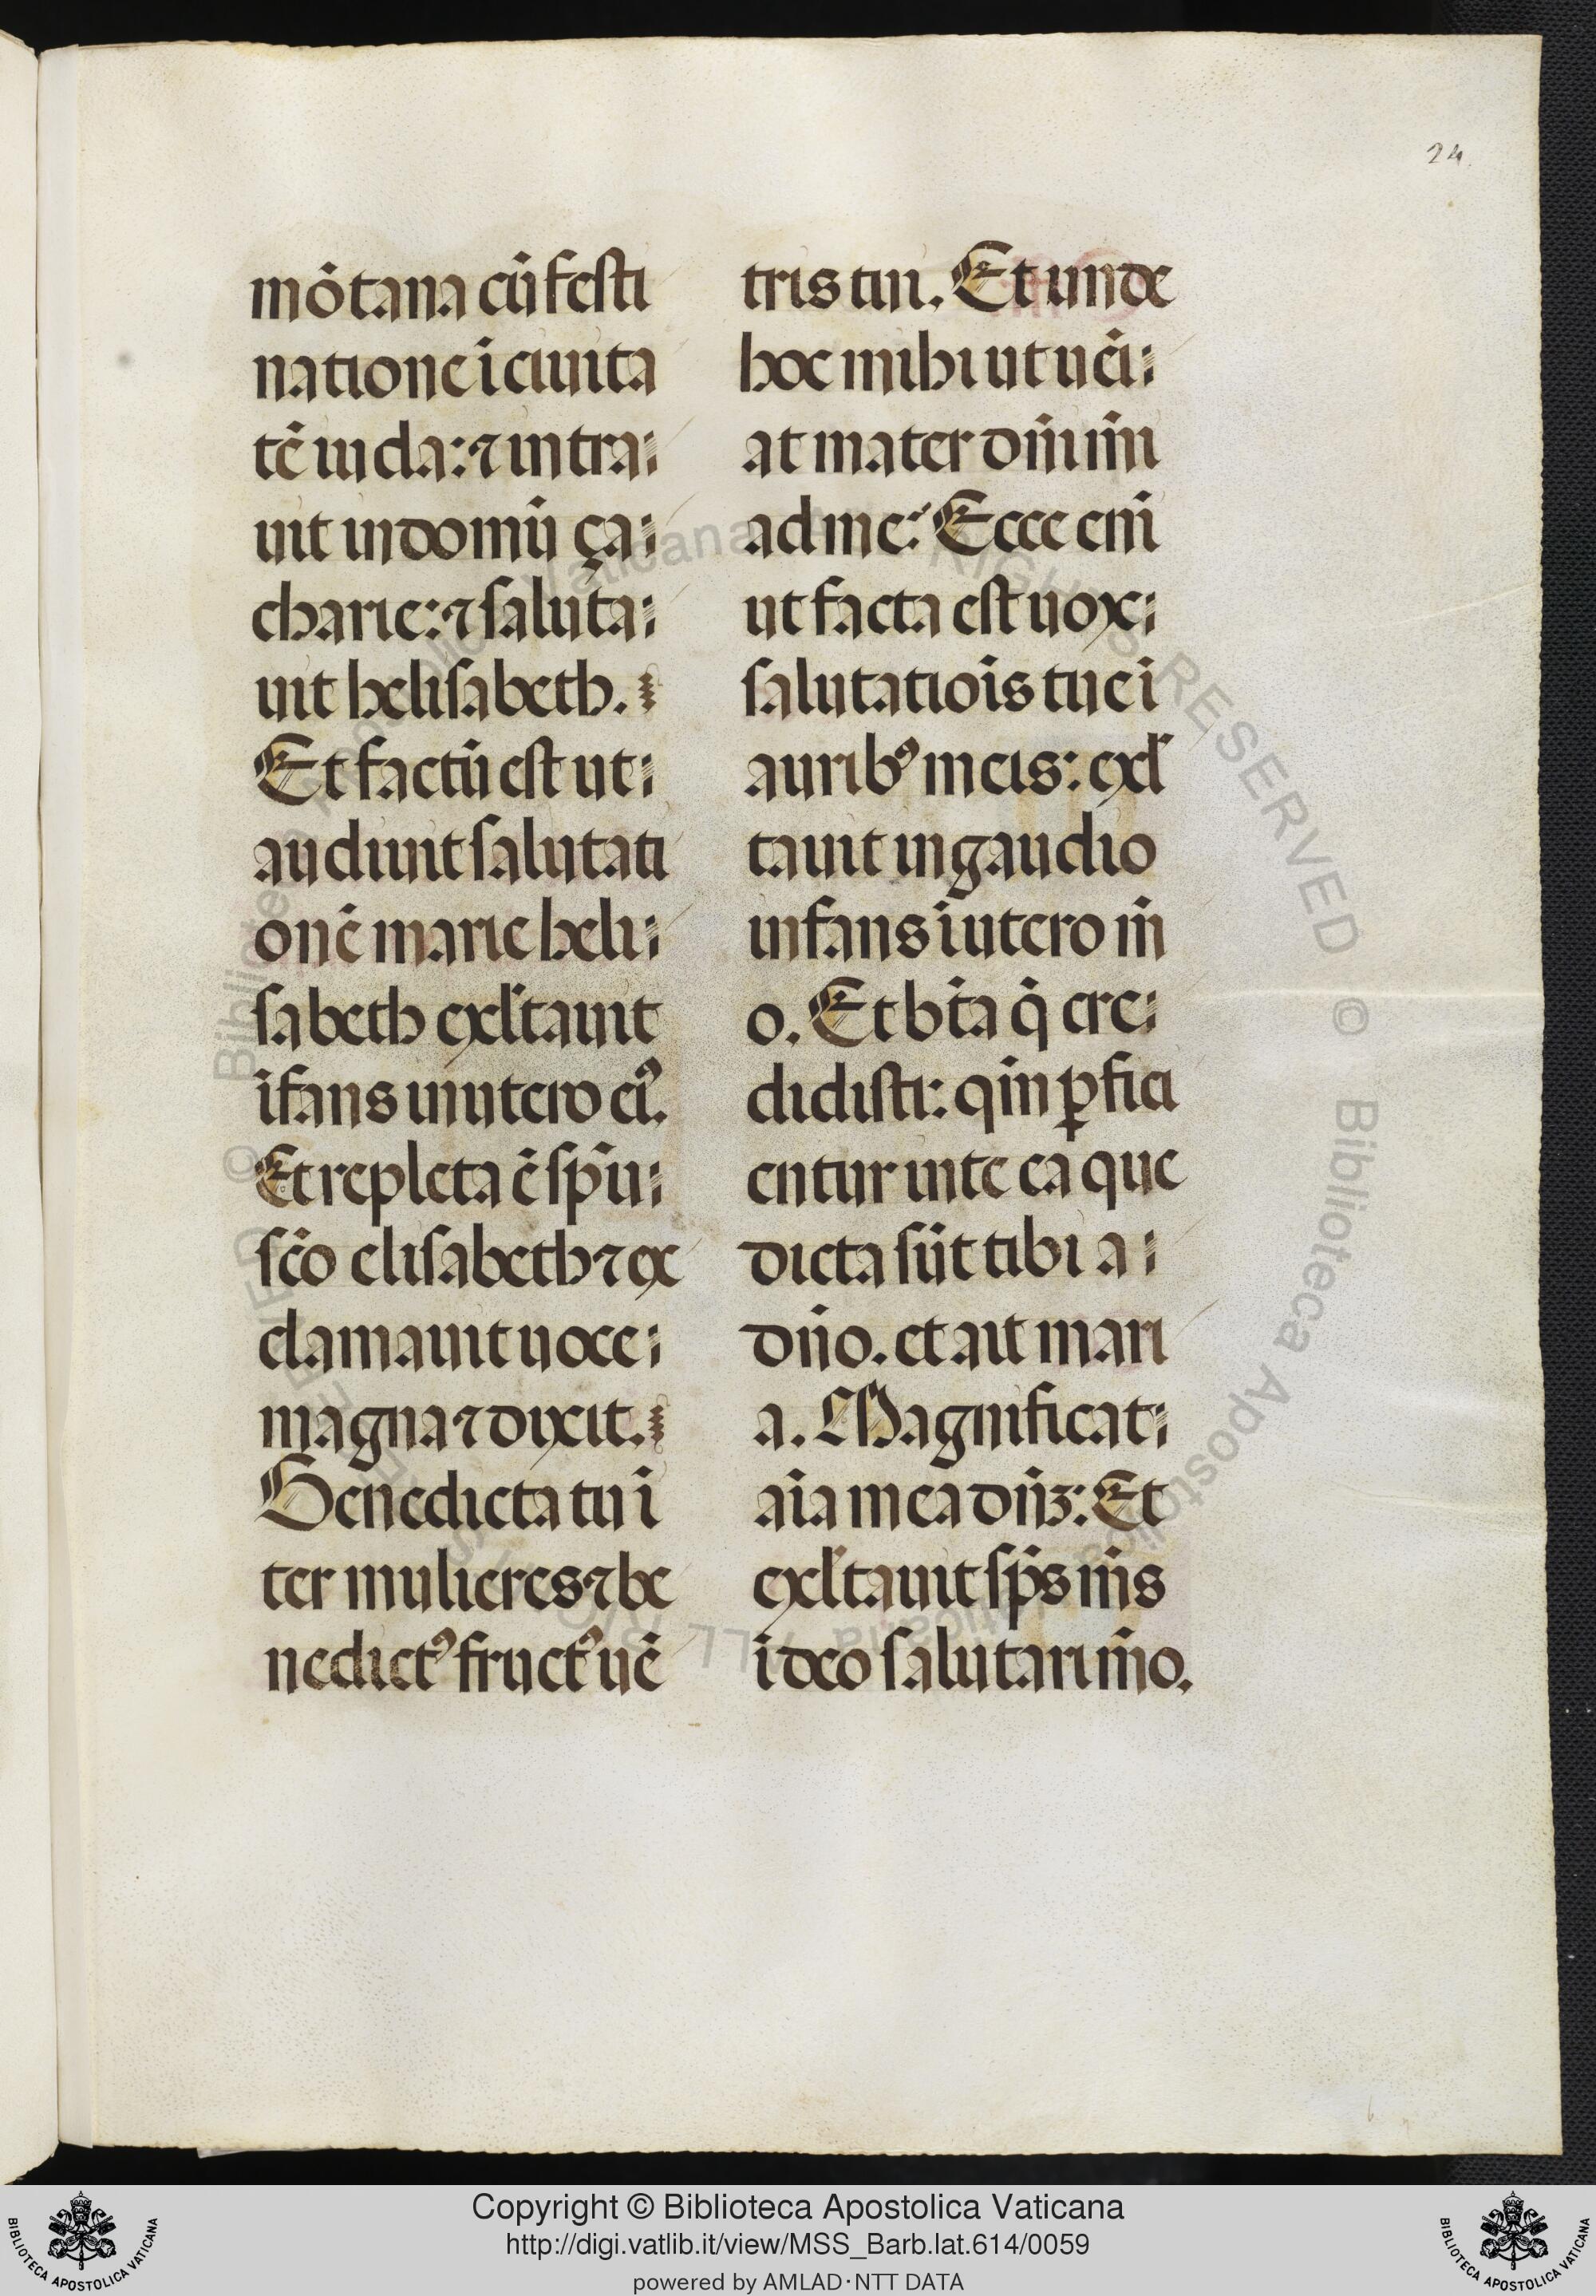 24
mōtana cū festi
natione ī ciuita
tē iuda: ⁊ intra
uit in domū ça
charie: ⁊ saluta
uit helisabeth.
Et factū est ut
audiuit salutati
onē marie heli
sabeth exl'tauit
īfans in utero ei⁹.
Et repleta ē sp̄u
sc̄o elisabeth ⁊ ex
clamauit uoce
magna ⁊ dixit.
Benedicta tu ī
ter mulieres ⁊ be
nedict⁹ fruct⁹ uē
tris tui. Et unde
hoc mihi ut uēi
at mater dn̄i m̄i
ad me: Ecce eni̅
ut facta est uox
salutatiōis tue ī
aurib⁹ meis: exl'
tauit in gaudio
infans ī utero m̄
o. Et bt̄a q̄ cre
didisti: qm̄ ꝑfici
entur in te ea que
dicta sūt tibi a
dn̄o. et ait mari
a. Magnificat
aīa mea dn̄ꝫ: Et
exl'tauit sp̄s m̄s
ī deo salutari m̄o.
Copyright © Biblioteca Apostolica Vaticana
http://digi.vatlib.it/view/MSS_Barb.lat.614/0059
powered by AMLAD·NTT DATA
BIBLIOTECA APOSTOLICA VATICANA
BIBLIOTECA APOSTOLICA VATICANA